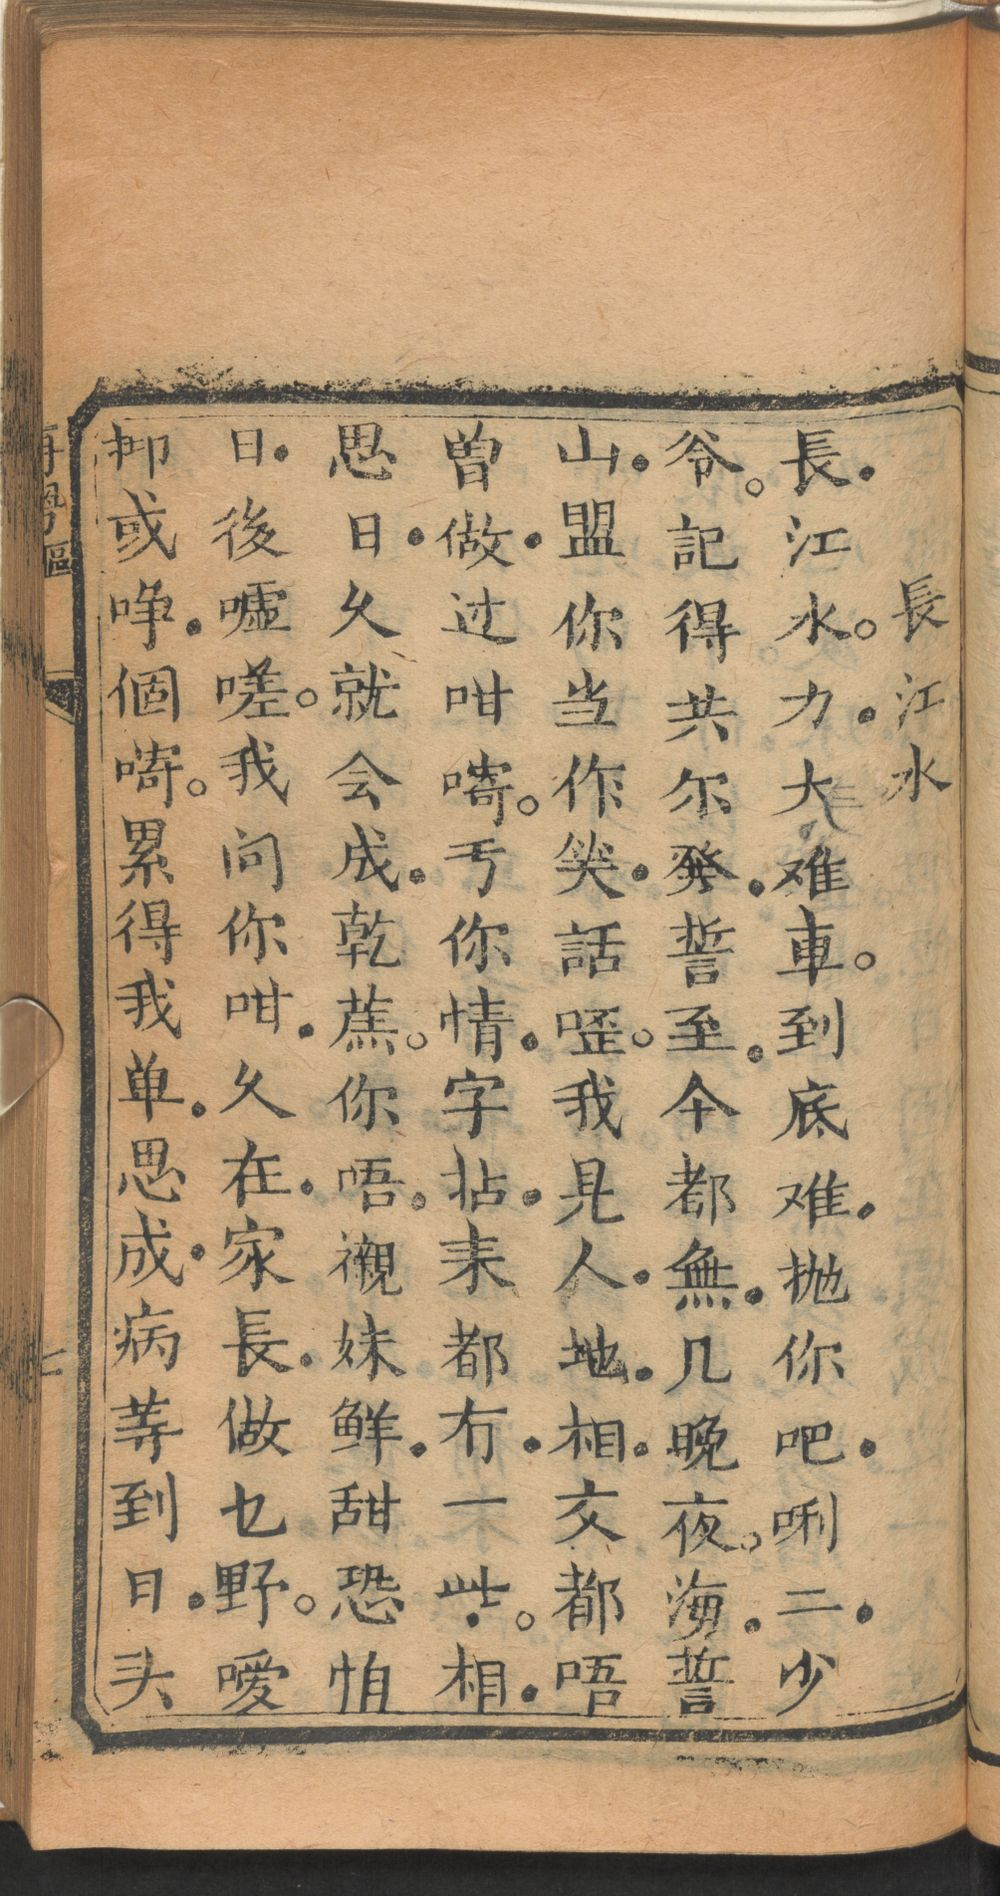 長江水
長江水。力大难車。到底难抛你吧唎二少
爷。記得共尔發誓至今都無几晚夜。海誓
山盟你当作笑話啞。我見人地相交都唔
曾做过咁嗬。亏你情字拈来都冇一些。相
思日久就会成乾蕉。你唔襯妹鲜甜恐怕
日後嘘嗟。我问你咁久在家長做乜野。嗳
抑或啤個嗬。累得我单思成病等到日头